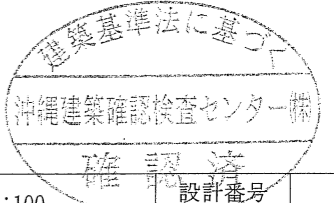 建築基準法に基づく
沖縄建築確認検査センター㈱
確認済
:100
設計番号